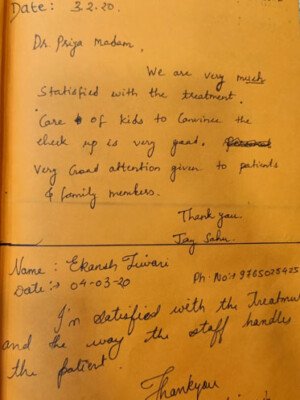 Date: 3.2.20.
Dr. Priya Madam,
We are very much
Statisfied with the treatment.
Care of kids to Convince the
check up is very good.
Very Good attention given to patients
& family members.
Thank you.
Jay Sahu.
Name : Ekansh Tiwari
Date :- 04-03-20
Ph. No:- 9765025425
I'm satisfied with the Treatment
and the way the staff handles
the patient.
Thankyou